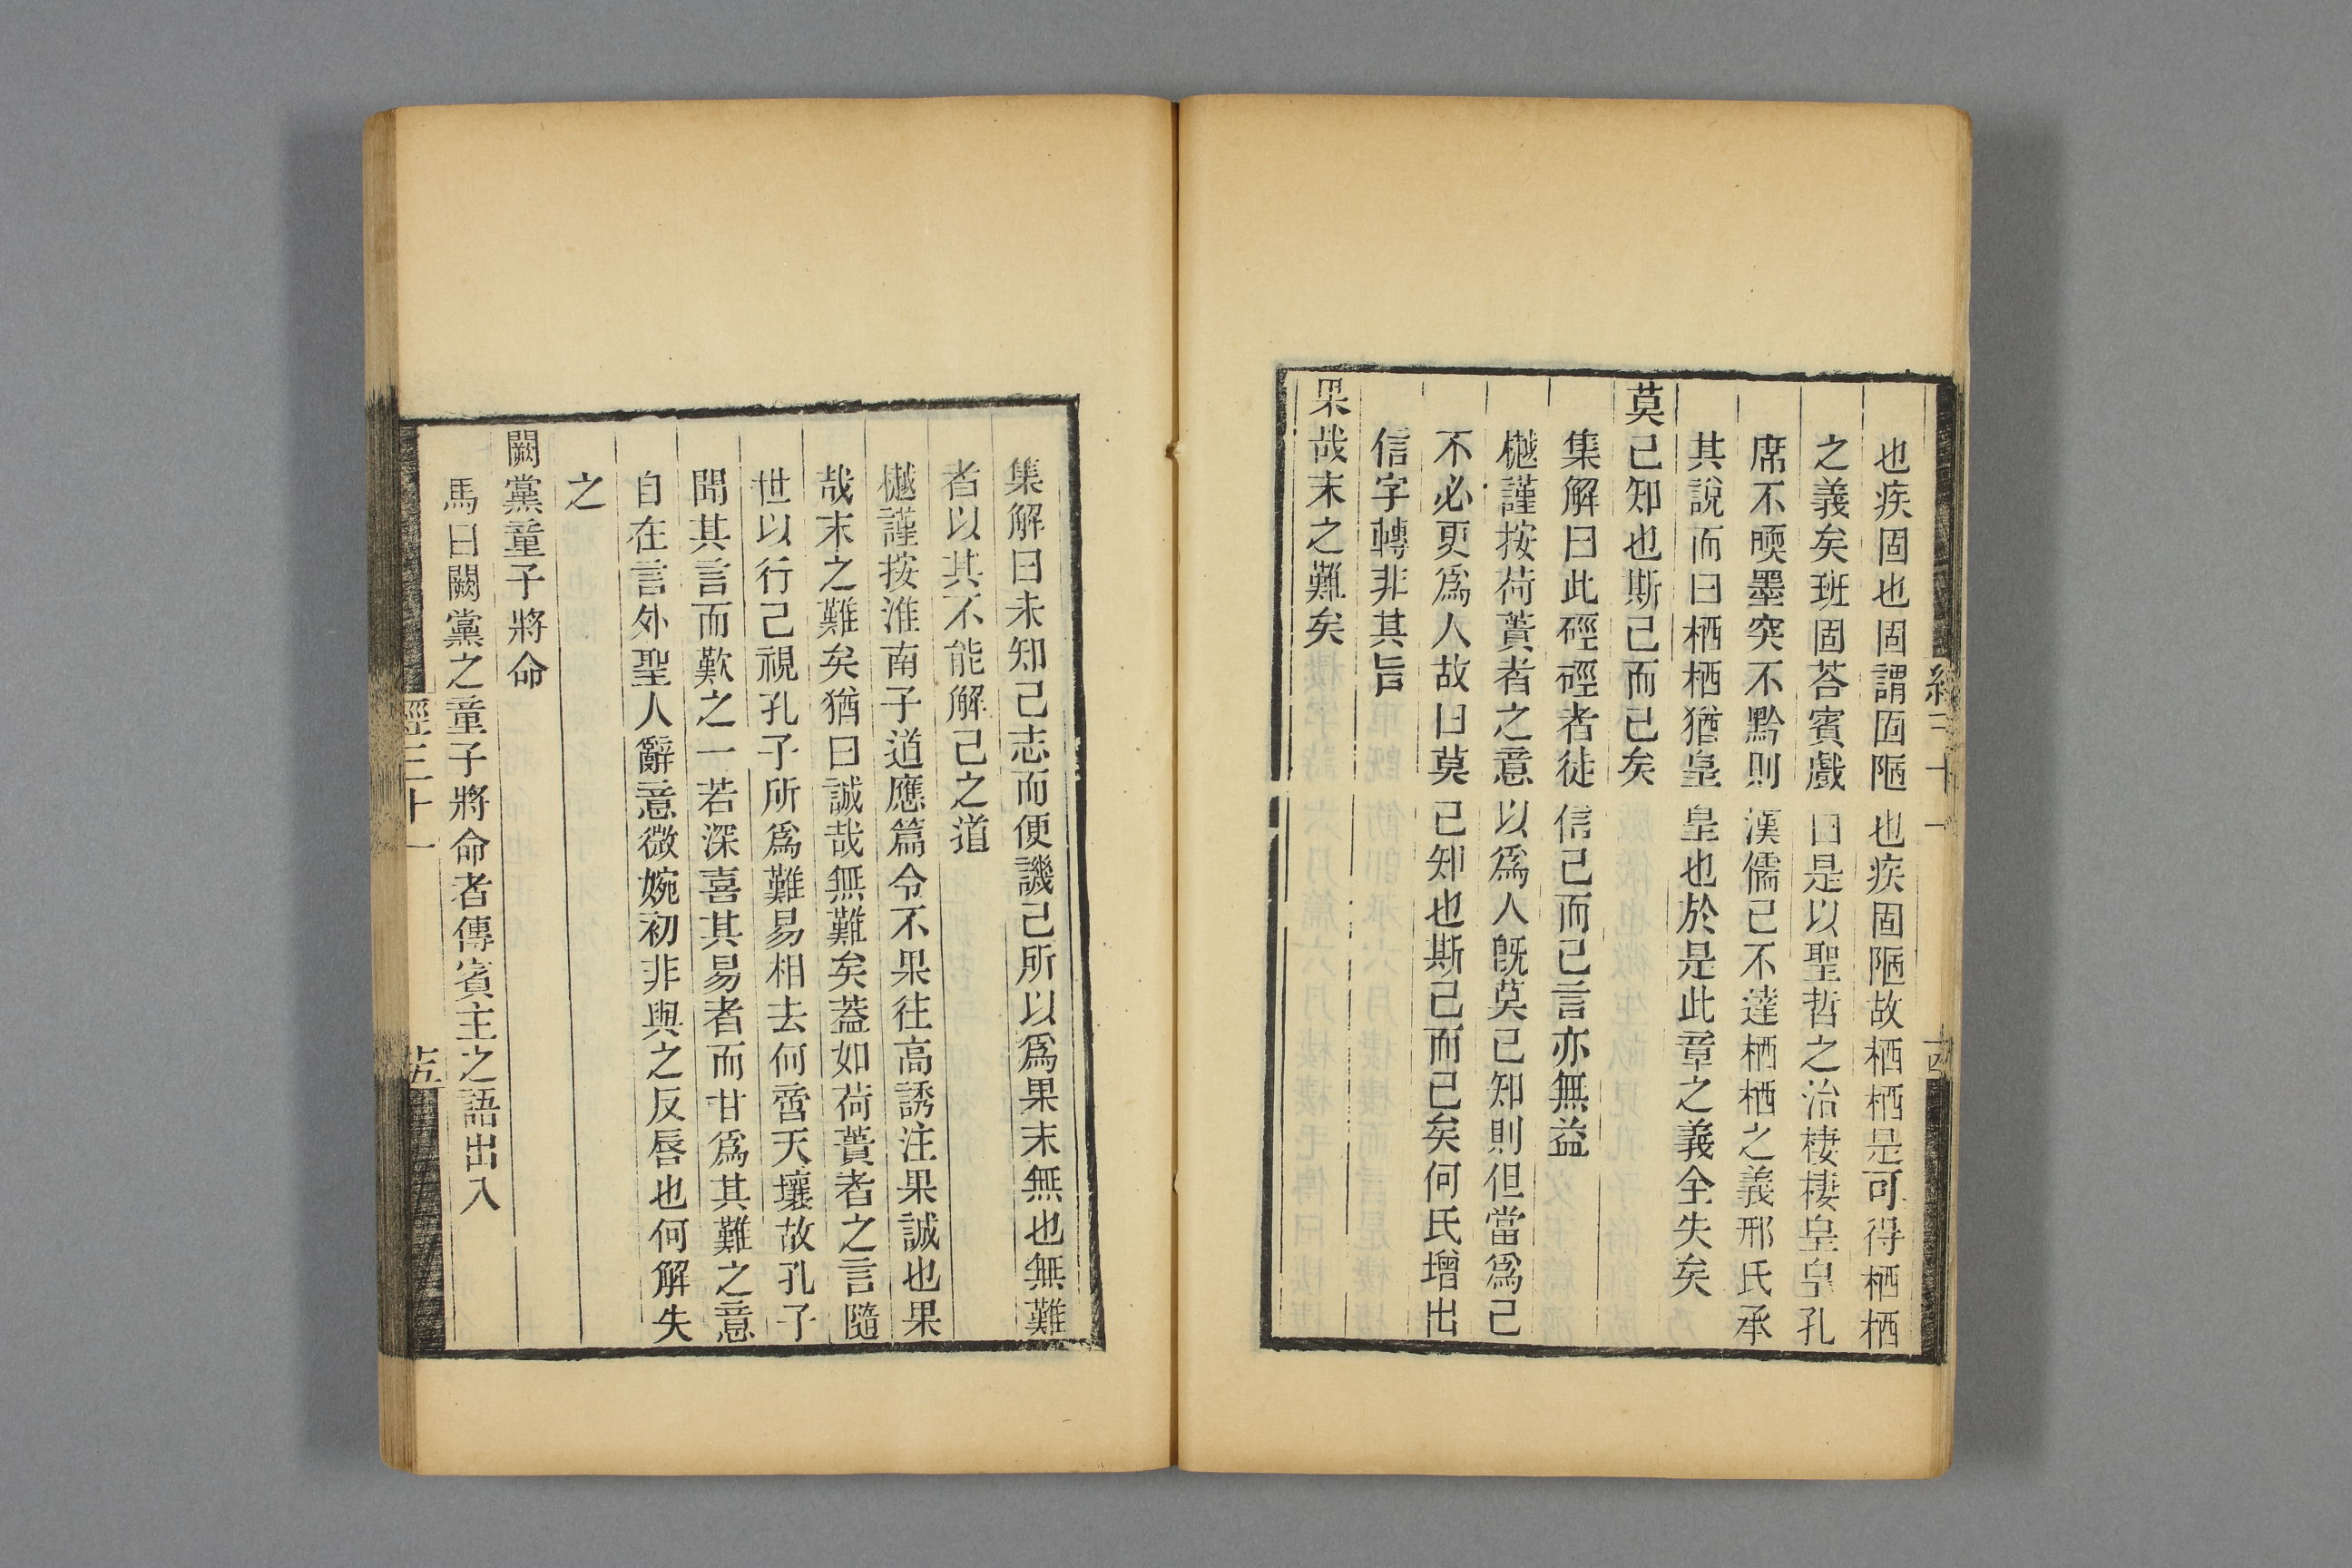 也疾固也固謂固陋也疾固陋故栖栖是可得栖栖
之義矣班固荅賓戲曰是以聖哲之治棲棲皇皇孔
席不暖墨突不黔則漢儒已不達栖栖之義邢氏承
其說而曰栖栖猶皇皇也於是此章之義全失矣
莫己知也斯己而已矣
集解曰此硜硜者徒信己而已言亦無益
樾謹按荷蕢者之意以爲人旣莫己知則但當爲己
不必更爲人故曰莫己知也斯己而已矣何氏增出
信字轉非其旨
果哉末之難矣
集解曰未知己志而便譏己所以爲果末無也無難
者以其不能解己之道
樾謹按淮南子道應篇令不果往高誘注果誠也果
哉末之難矣猶曰誠哉無難矣蓋如荷蕢者之言隨
世以行己視孔子所爲難易相去何啻天壤故孔子
聞其言而歎之一若深喜其易者而甘爲其難之意
自在言外聖人辭意微婉初非與之反唇也何解失
之
闕黨童子將命
馬曰闕黨之童子將命者傳賓主之語出入
經三十一
十五